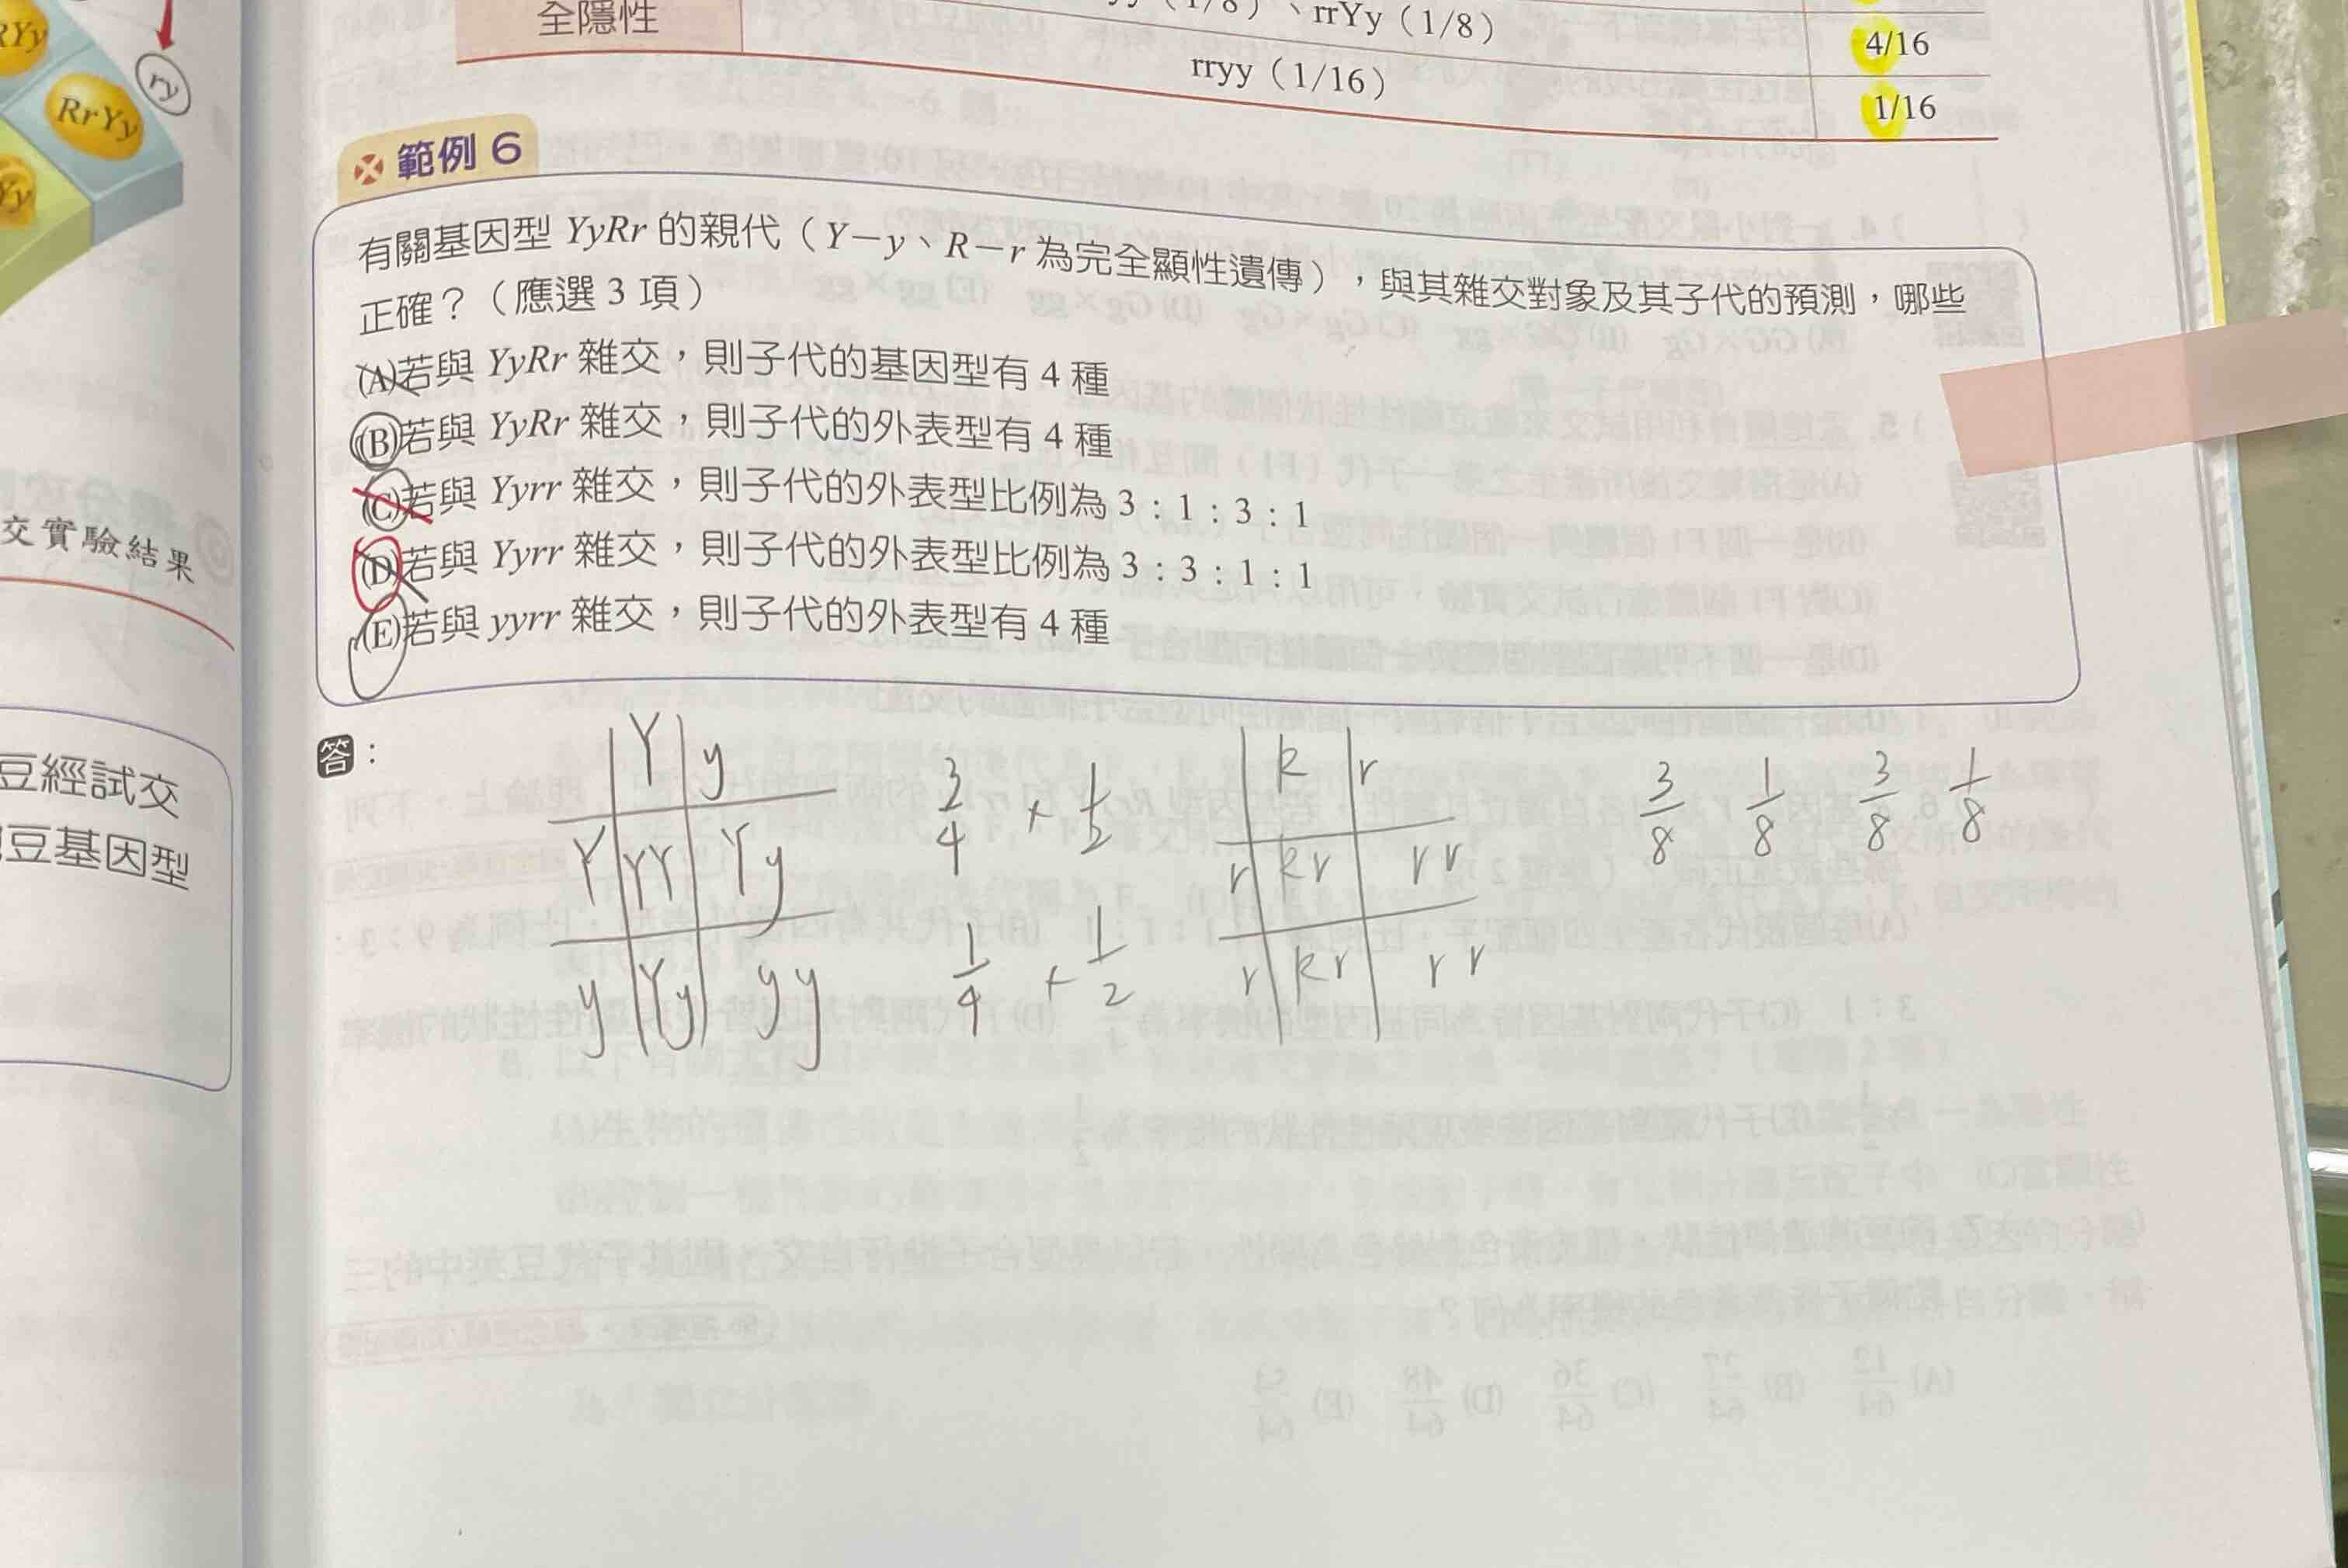 RYy
ry
RrYy
Yy
交實驗結果
豆經試交
豆基因型
全隱性
rrYy（1/8）
4/16
rryy（1/16）
1/16
範例 6
有關基因型 YyRr 的親代（Y－y、R－r 為完全顯性遺傳），與其雜交對象及其子代的預測，哪些
正確？（應選 3 項）
(A)若與 YyRr 雜交，則子代的基因型有 4 種
(B)若與 YyRr 雜交，則子代的外表型有 4 種
(C)若與 Yyrr 雜交，則子代的外表型比例為 3：1：3：1
(D)若與 Yyrr 雜交，則子代的外表型比例為 3：3：1：1
(E)若與 yyrr 雜交，則子代的外表型有 4 種
答：
Y y
Y YY Yy
y Yy yy
3/4 + 1/2
1/4 + 1/2
R r
r Rr rr
r Rr rr
3/8 1/8 3/8 1/8